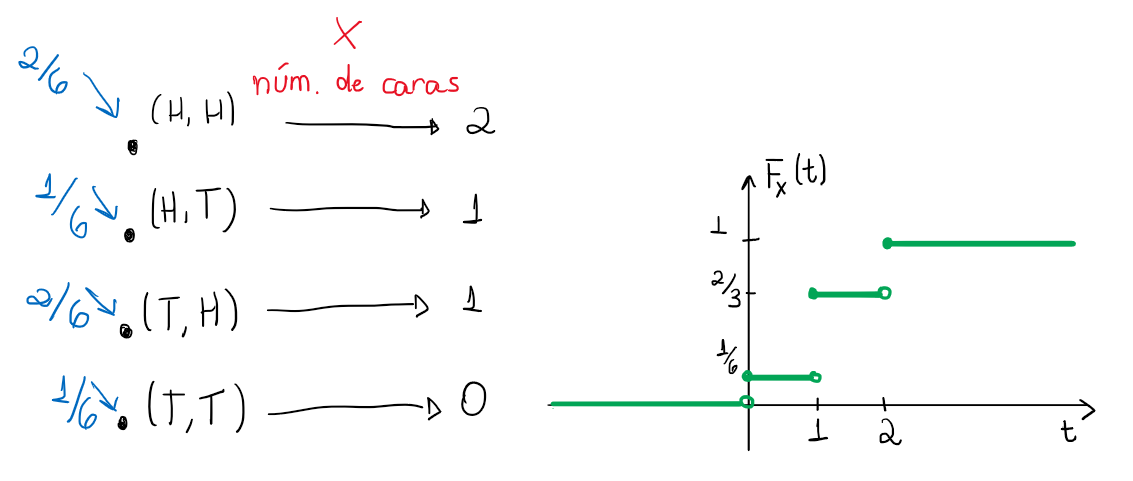 X
núm. de caras
2/6 (H, H) 2
1/6 (H, T) 1
2/6 (T, H) 1
1/6 (T, T) 0
F_X(t)
1
2/3
1/6
1 2 t